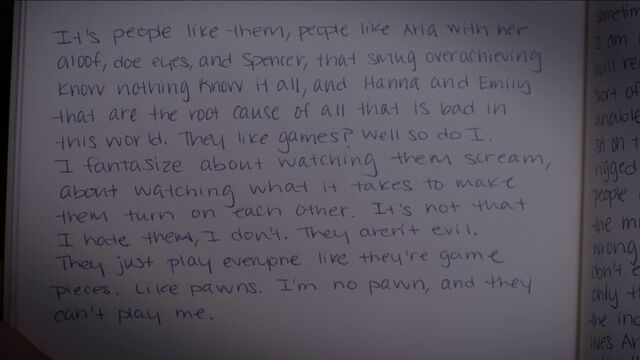 It's people like them, people like Aria with her
aloof, doe eyes, and Spencer, that smug overachieving
know nothing know it all, and Hanna and Emily
that are the root cause of all that is bad in
this world. They like games? Well so do I.
I fantasize about watching them scream,
about watching what it takes to make
them turn on each other. It's not that
I hate them, I don't. They aren't evil.
They just play everyone like they're game
pieces. Like pawns. I'm no pawn, and they
can't play me.
sometim
I am
will re
sort of
unable
sit on t
rigged
people
the mi
wrong
don't e
only th
the inc
lives Ar